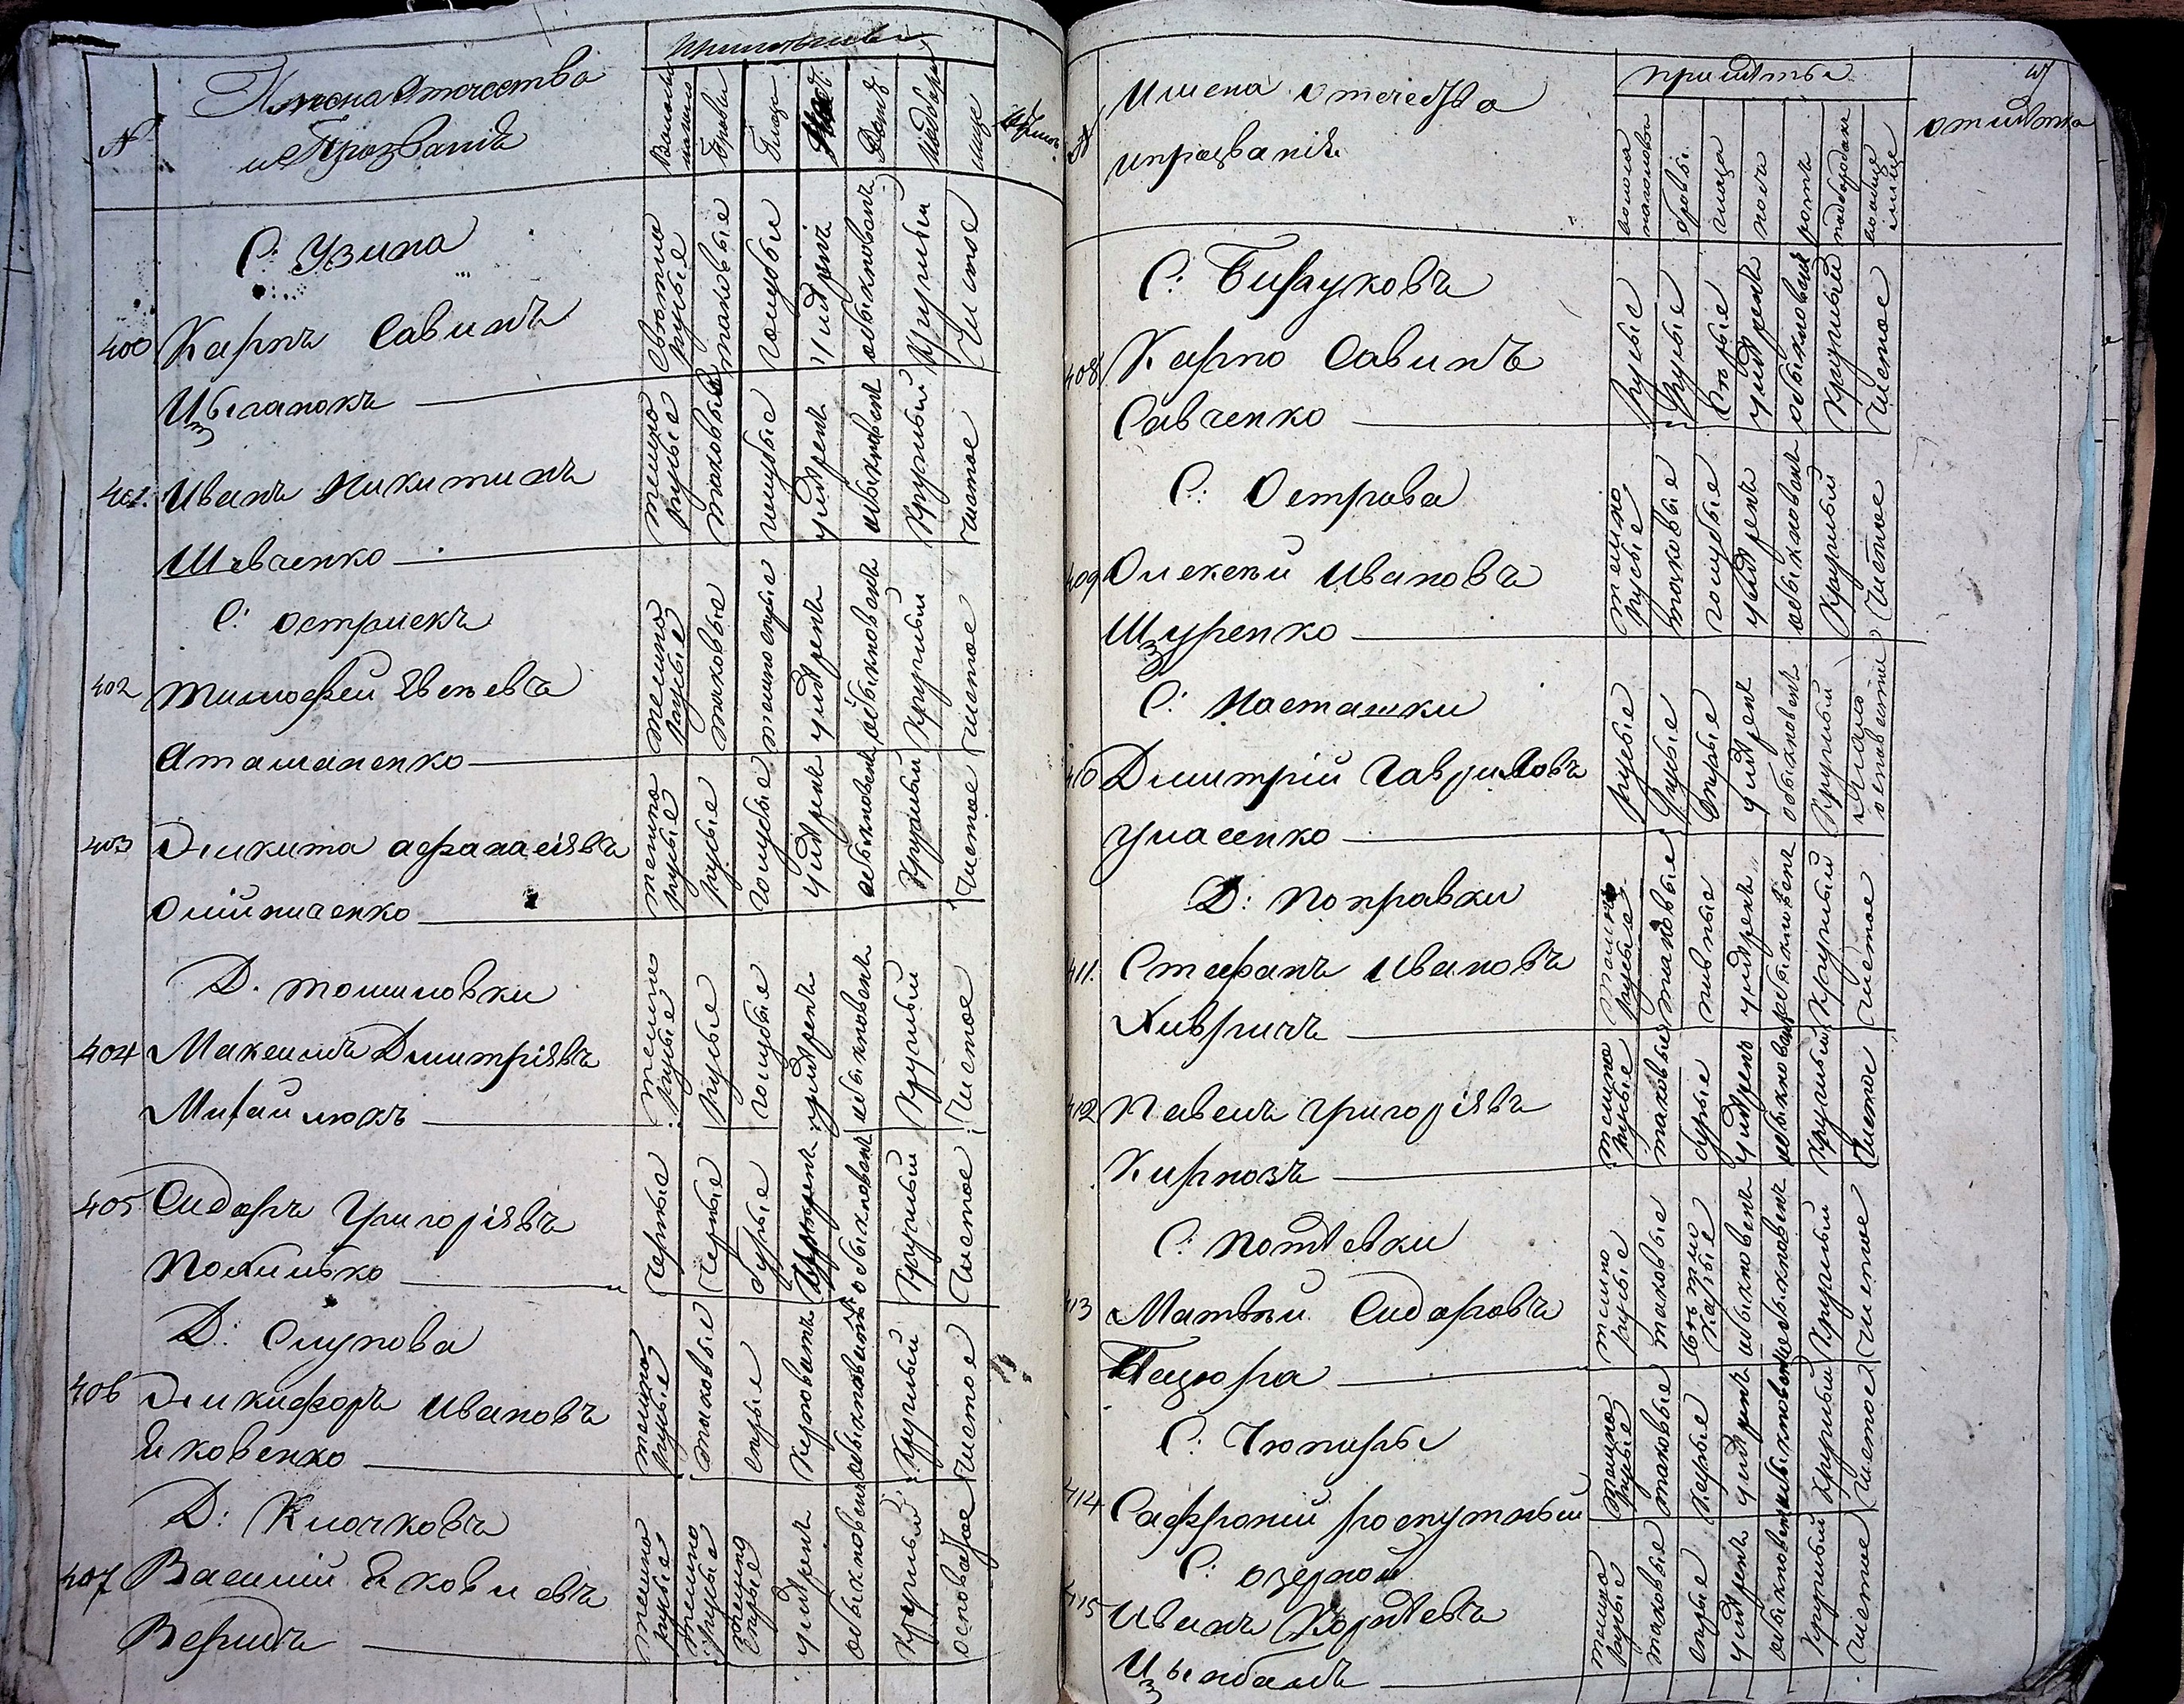 №
Имена Отечества
и Прозванія
приметы
Волосы
Брови
Глаза
Носъ
Ротъ
Подбородокъ
лице
С: Узина
400 Карпъ Савинъ
Цыганокъ
светло русые
таковые
голубы
умѣренъ
обыкновенъ
Круглый
Чистое
401. Иванъ Никитинъ
Шевченко
темно русые
таковые
голубые
умѣренъ
обыкновенъ
Круглый
чистое
С: остриекъ
402 Тимофей Евсѣевъ
Атаманенко
темно русые
таковые
темно серые
умѣренъ
обыкновенъ
Круглый
чистое
403 Никита афанасіявъ
Олійниченко
темно русые
русые
голубые
умѣренъ
обыкновенъ
Круглый
Чистое
Д. томиловки
404 Максимъ Дмитріявъ
Михайлюкъ
темно русые
русые
голубые
умѣренъ
обыкновенъ
Круглый
Чистое
405 Сидоръ Григоріявъ
Черные
Черные
бурые
умѣренъ
обыкновенъ
Круглый
Чистое
Д: Слупова
406 Никифоръ Ивановъ
Яковенко
темно русые
таковые
серые
обыкновенъ
Круглый
Чистое
Д: Клочковъ
407 Василій Яковлевъ
темно русые
темно русые
темно серые
умѣренъ
обыкновенъ
Круглый
№
Имена отечества
и прозванія
приметы
отметка
волосы на голове
бровы
глаза
носъ
ротъ
подбородокъ
лице
С: Бирюковъ
408 Карпо Савинъ
Савченко
русые
русые
Серые
умѣренъ
обыкновенъ
Круглый
Чистое
С: Острова
409 Олексѣй Ивановъ
Щуренко
темно русые
таковые
голубые
умѣренъ
обыкновенъ
Круглый
Чистое
С: Насташки
410 Дмитрій Гавриловъ
Уласенко
русые
русые
Серые
умѣренъ
обыкновенъ
Круглый
Д: поправки
411. Стефанъ Ивановъ
Хивричъ
темно русые
таковые
пивные
умѣренъ
обыкновенъ
Круглый
Чистое
412 Павелъ Григоріявъ
Кирнозъ
темно русые
таковые
бурые
умѣренъ
обыкновенъ
Круглый
Чистое
С: Потіевки
413 Матвѣй Сидоровъ
Пацюра
темно русые
таковые
светло Карые
обыкновенъ
обыкновенъ
Круглый
Чистое
С: Чюпиры
414 Сафроній роспутный
темно русые
таковые
Карые
умѣренъ
обыкновенъ
Круглый
Чистое
С: озерной
415 Иванъ Кордіевъ
Цымбалъ
темно русые
таковые
серые
умѣренъ
обыкновенъ
Круглый
Чистое